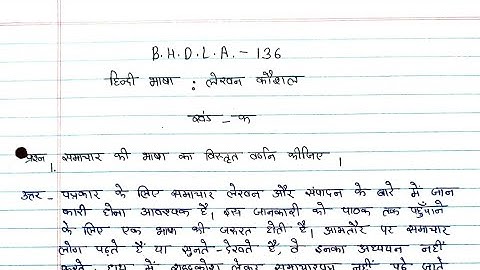 B.H.D.L.A. - 136
हिन्दी भाषा : लेखन कौशल
खंड - क
प्रश्न 1. समाचार की भाषा का विस्तृत वर्णन कीजिए ।
उत्तर - पत्रकार के लिए समाचार लेखन और संपादन के बारे में जान
कारी होना आवश्यक है। इस जानकारी को पाठक तक पहुँचाने
के लिए एक भाषा की जरूरत होती है। आमतौर पर समाचार
लोग पढ़ते हैं या सुनते - देखते हैं, वे इनका अध्ययन नहीं
करते। हाथ में शब्दकोश लेकर समाचारपत्र नहीं पढ़े जाते